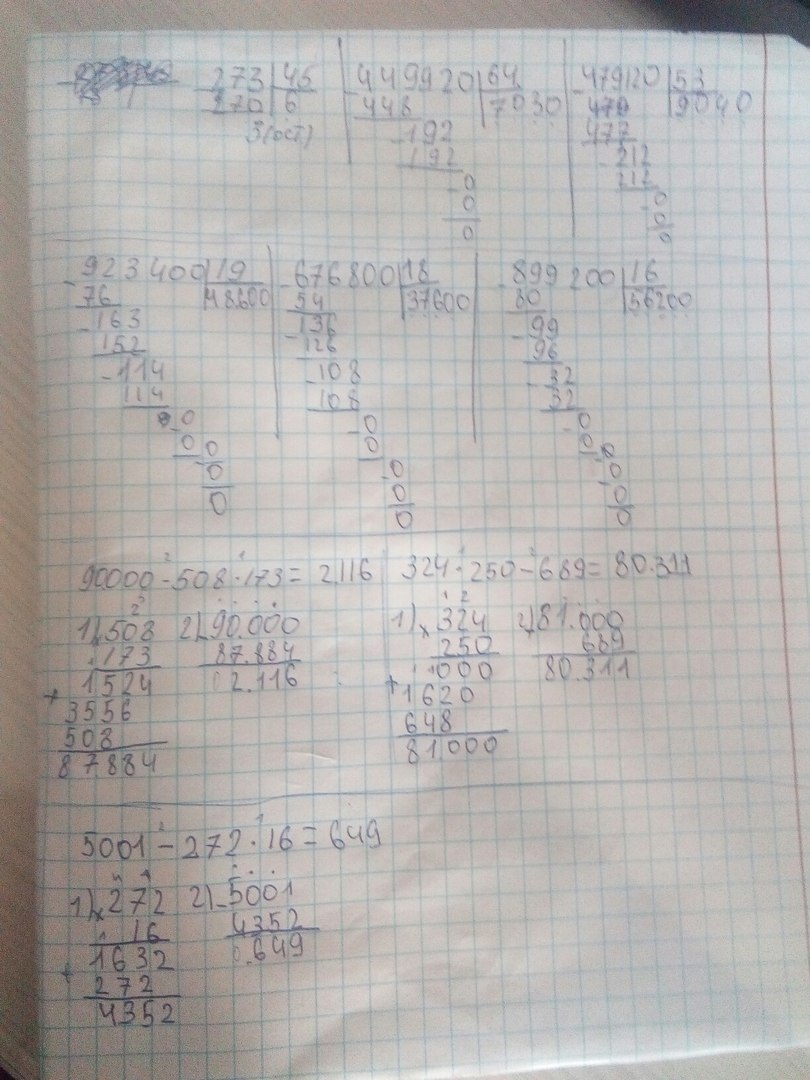 273 45
270 6
3(ост)
449920 64
448 7030
192
192
0
0
0
479120 53
9040
477
212
212
0
0
0
923400 19
76 48600
163
152
114
114
0
0 0
0
0
676800 18
54 37600
136
126
108
108
0
0
0
0
0
899200 16
80 56200
99
96
32
32
0
0
0
0
0
90000 - 508 · 173 = 2.116
1) 508
173
1524
3556
508
87884
2) 90.000
87.884
2.116
324 · 250 - 689 = 80.311
1) 324
250
000
1620
648
81.000
2) 81.000
689
80.311
5001 - 272 · 16 = 649
1) 272
16
1632
272
4352
2) 5001
4352
649